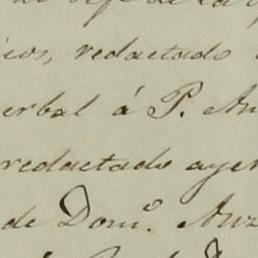 ios, redactado
erbal á P. An
redactado ayer
de Dom.º Anz